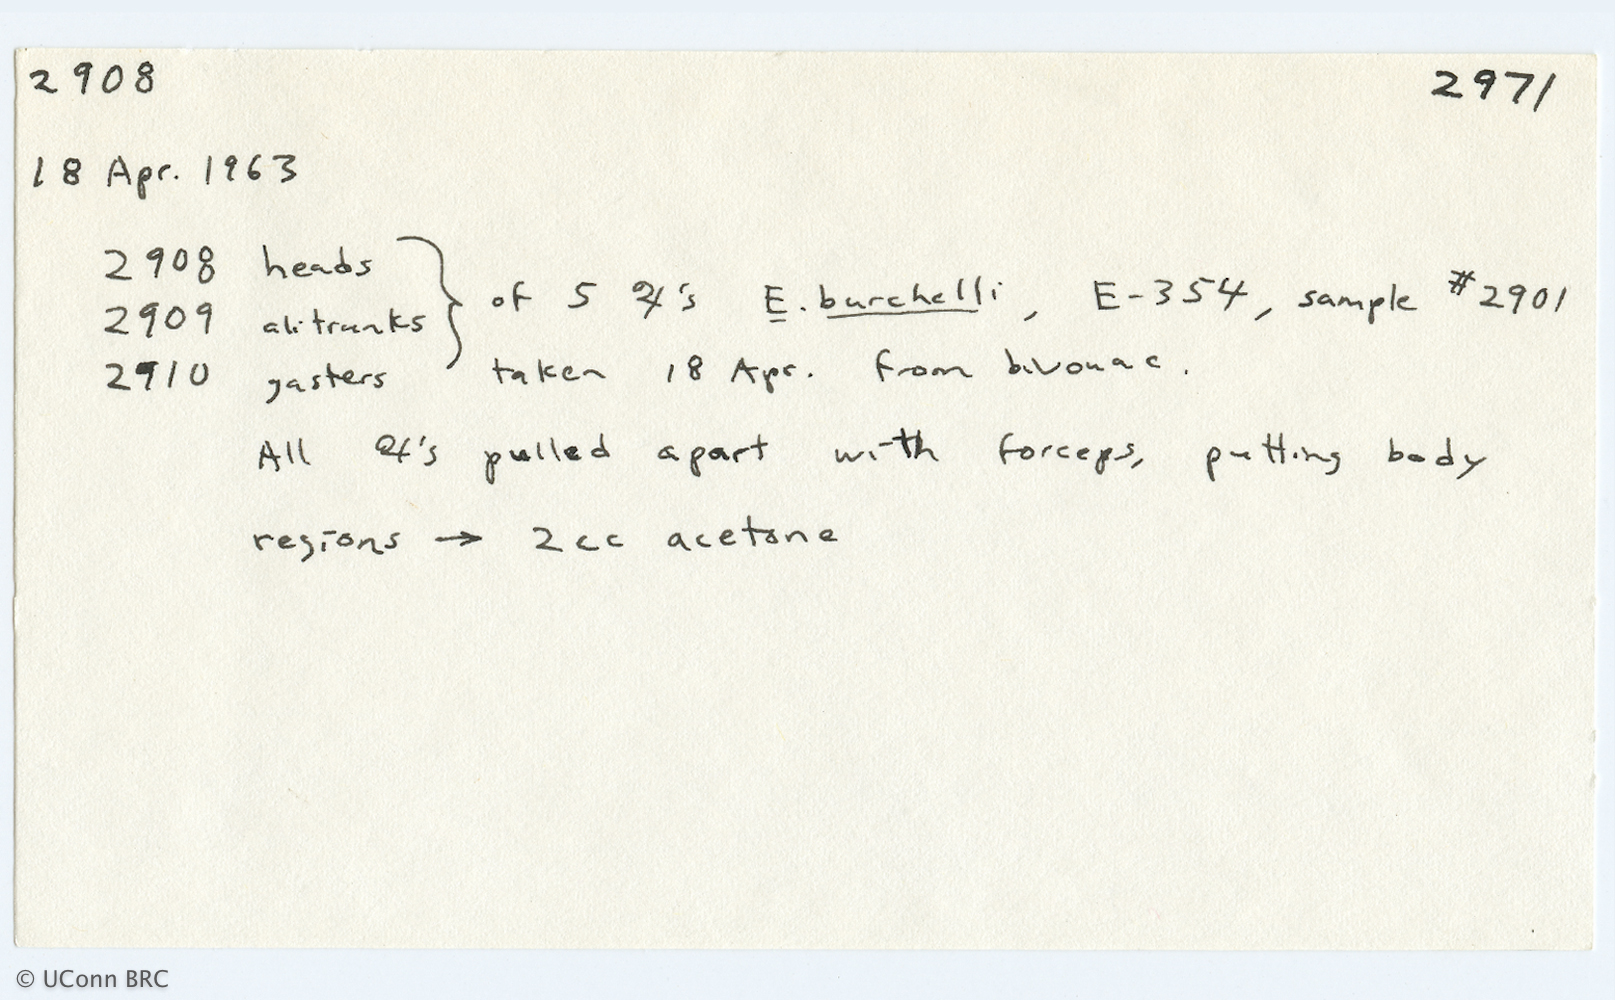 2908 2971
18 Apr. 1963
2908 heads
2909 alitrunks
2910 gasters
of 5 ♃'s E. burchelli, E-354, sample #2901
taken 18 Apr. from bivouac.
All ♃'s pulled apart with forceps, putting body
regions → 2cc acetone
© UConn BRC